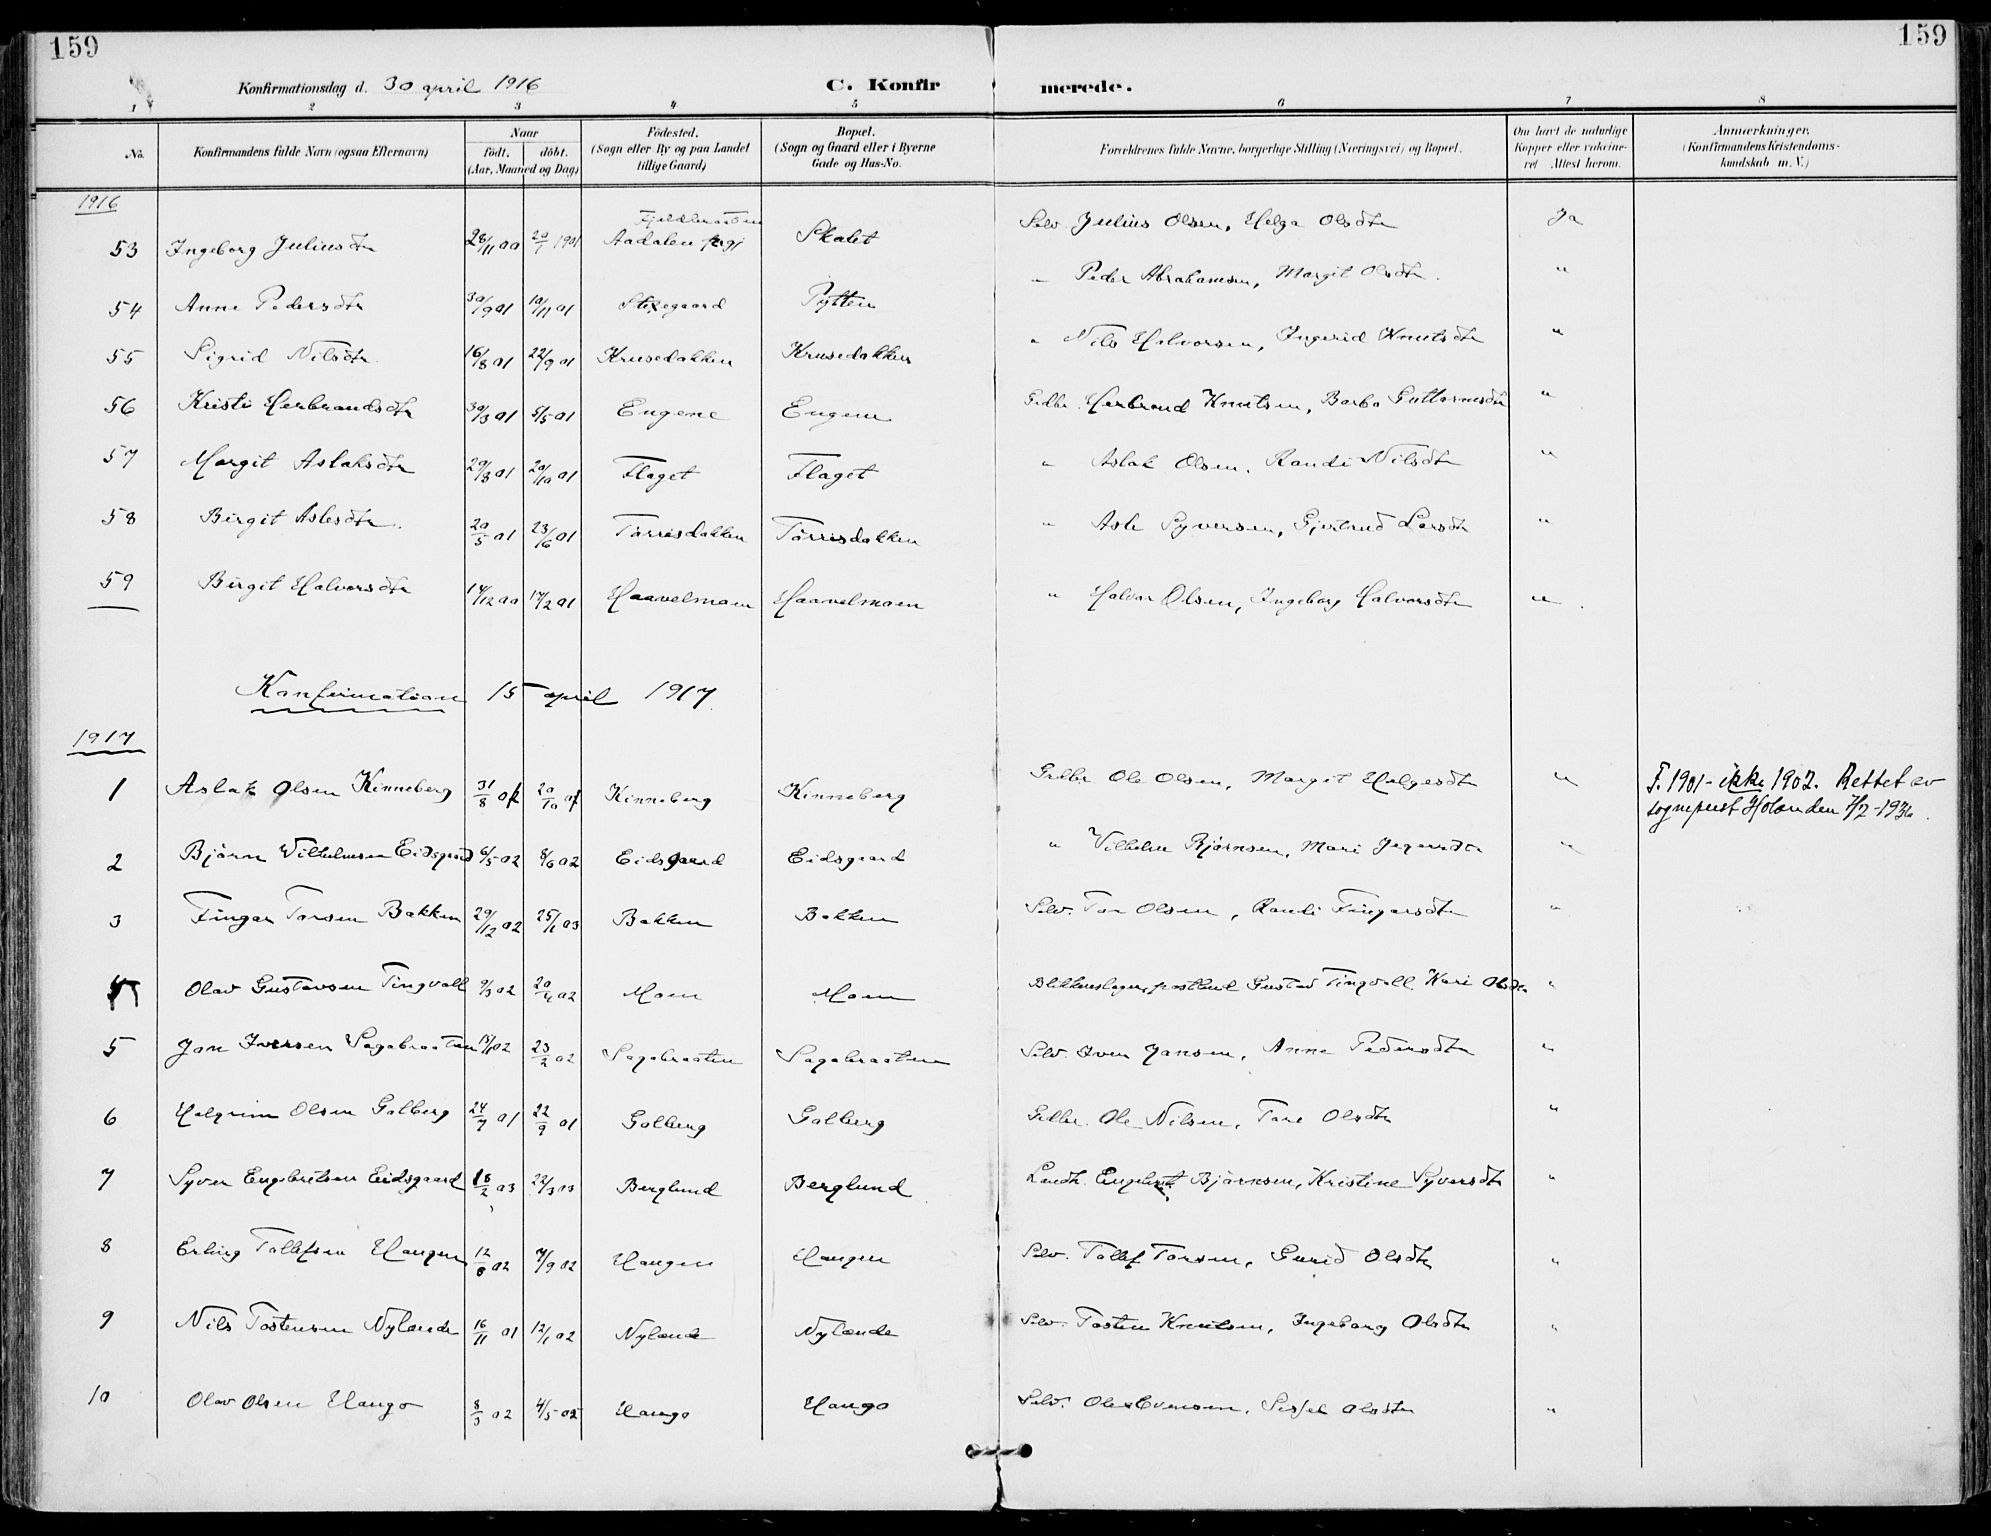 159 159
Konfirmationsdag d. 30 april 1916 C. Konfirmerede.
1 2 3 4 5 6 7 8
No. Konfirmandens fulde Navn (ogsaa Efternavn) Naar født. døbt. (Aar, Maaned og Dag) Fødested. (Sogn eller By og paa Landet tillige Gaard) Bopæl. (Sogn og Gaard eller i Byerne Gade og Hus-No. Forældrenes fulde Navne, borgerlige Stilling (Næringsvei) og Bopæl. Om havt de naturlige Kopper eller vakcineret Attest herom. Anmærkninger. (Konfirmandens Kristendomskundskab m. V.)
1916
53 Ingeborg Juliusdtr 28/11 00 20/1 1901 Aadalen Skalet Selv. Julius Olsen, Helga Olsdtr Ja
54 Anne Pedersdtr 30/9 01 10/11 01 Stixegaard Pytten " Peder Abrahamsen, Margit Olsdtr. "
55 Sigrid Nilsdtr 16/8 01 22/9 01 Krusedokken Krusedokken " Nils Halvorsen, Ingerid Knutsdtr "
56 Kristi Herbrandsdtr 30/3 01 5/5 01 Engene Engene Gdbr. Herbrand Knutsen, Barbo Guttormsdtr "
57 Margit Aslaksdtr 29/8 01 20/10 01 Flaget Flaget " Aslak Olsen, Randi Nilsdtr "
58 Birgit Aslesdtr. 20/5 01 23/6 01 Tørrisdokken Tørrisdokken " Asle Syversen, Gjertrud Larsdtr "
59 Birgit Halvorsdtr 14/12 00 17/2 01 Haavelmoen Haavelmoen " Halvor Olsen, Ingeborg Halvorsdtr "
Konfirmation 15 april 1917.
1917
1 Aslak Olsen Kinneberg 31/8 01 20/10 01 Kinneberg Kinneberg Gdbr Ole Olsen, Margit Helgesdtr " F. 1901 - ikke 1902. Rettet av
sogneprest Holanden 7/2-1936.
2 Bjørn Wilhelmsen Eidsgaard 6/5 02 8/6 02 Eidsgaard Eidsgaard " Vilhelm Bjørnsen, Mari "
3 Fingar Torsen Bakken 29/12 02 25/1 03 Bakken Bakken Selv. Tor Olsen, Randi Fingarsdtr "
4 Olav Gustavsen Tingvoll 9/3 02 20/4 02 Moen Moen Gustav Tingvoll, Kari Olsdtr "
5 Jon Iversen Sagabraaten 15/1 02 23/2 02 Sagabraaten Sagabraaten Selv. Iver Jonsen, Anne Pedersdtr "
6 Halgrim Olsen Golberg 24/7 01 22/9 01 Golberg Golberg Gdbr. Ole Nilsen, Tore Olsdtr "
7 Syver Engebretsen Eidsgaard 18/2 03 22/3 03 Berglund Berglund Landh. Engebret Bjørnsen, Kristine Syversdtr "
8 Erling Tollefsen Haugen 12/8 02 7/9 02 Haugen Haugen Selv. Tollef Torsen, Gurid Olsdtr "
9 Nils Tostensen Nylænde 16/11 01 12/1 02 Nylænde Nylænde Selv. Tosten Knutsen, Ingeborg Olsdtr "
10 Olav Olsen Haugo 8/3 02 4/5 02 Haugo Haugo Selv. Ole Evensen, Sissel Olsdtr "